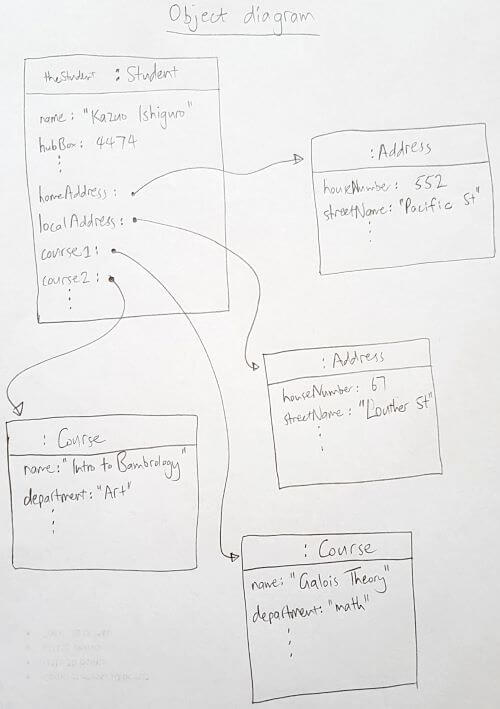 Object diagram
theStudent : Student
name : "Kazuo Ishiguro"
hubBox : 4474
homeAddress :
localAddress :
course1 :
course2 :
: Address
houseNumber : 552
streetName : "Pacific St"
: Address
houseNumber : 67
streetName : "Louther St"
: Course
name : "Intro to Bambrology"
department : "Art"
: Course
name : "Galois Theory"
department : "math"